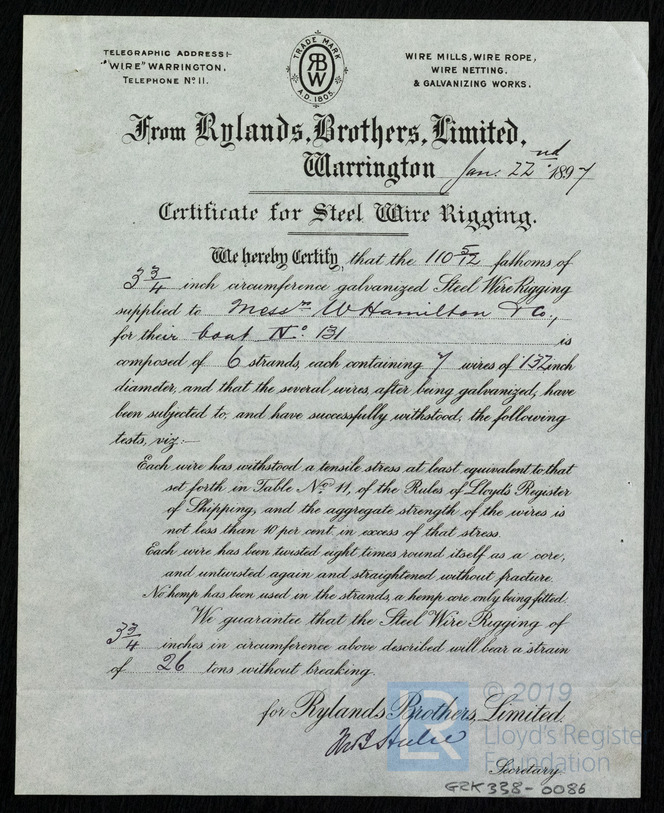 TELEGRAPHIC ADDRESS:-
"WIRE" WARRINGTON.
TELEPHONE No. 11.
TRADE MARK
RB
W
A.D. 1805.
WIRE MILLS, WIRE ROPE,
WIRE NETTING,
& GALVANIZING WORKS.
From Rylands, Brothers, Limited,
Warrington Jan. 22nd 1897
Certificate for Steel Wire Rigging.
We hereby Certify, that the 110 5/12 fathoms of
3 3/4 inch circumference galvanized Steel Wire Rigging
supplied to Messrs W Hamilton & Co.,
for their boat No. 131 is
composed of 6 strands, each containing 7 wires of .132 inch
diameter, and that the several wires, after being galvanized, have
been subjected to, and have successfully withstood, the following
tests, viz:—
Each wire has withstood a tensile stress at least equivalent to that
set forth in Table No. 11, of the Rules of Lloyd's Register
of Shipping, and the aggregate strength of the wires is
not less than 10 per cent. in excess of that stress.
Each wire has been twisted eight times round itself as a core,
and untwisted again and straightened without fracture.
No hemp has been used in the strands, a hemp core only being fitted.
We guarantee that the Steel Wire Rigging of
3 3/4 inches in circumference above described will bear a strain
of 26 tons without breaking.
for Rylands Brothers, Limited.
Secretary.
GZK338-0086
LR
© 2019
Lloyd's Register
Foundation